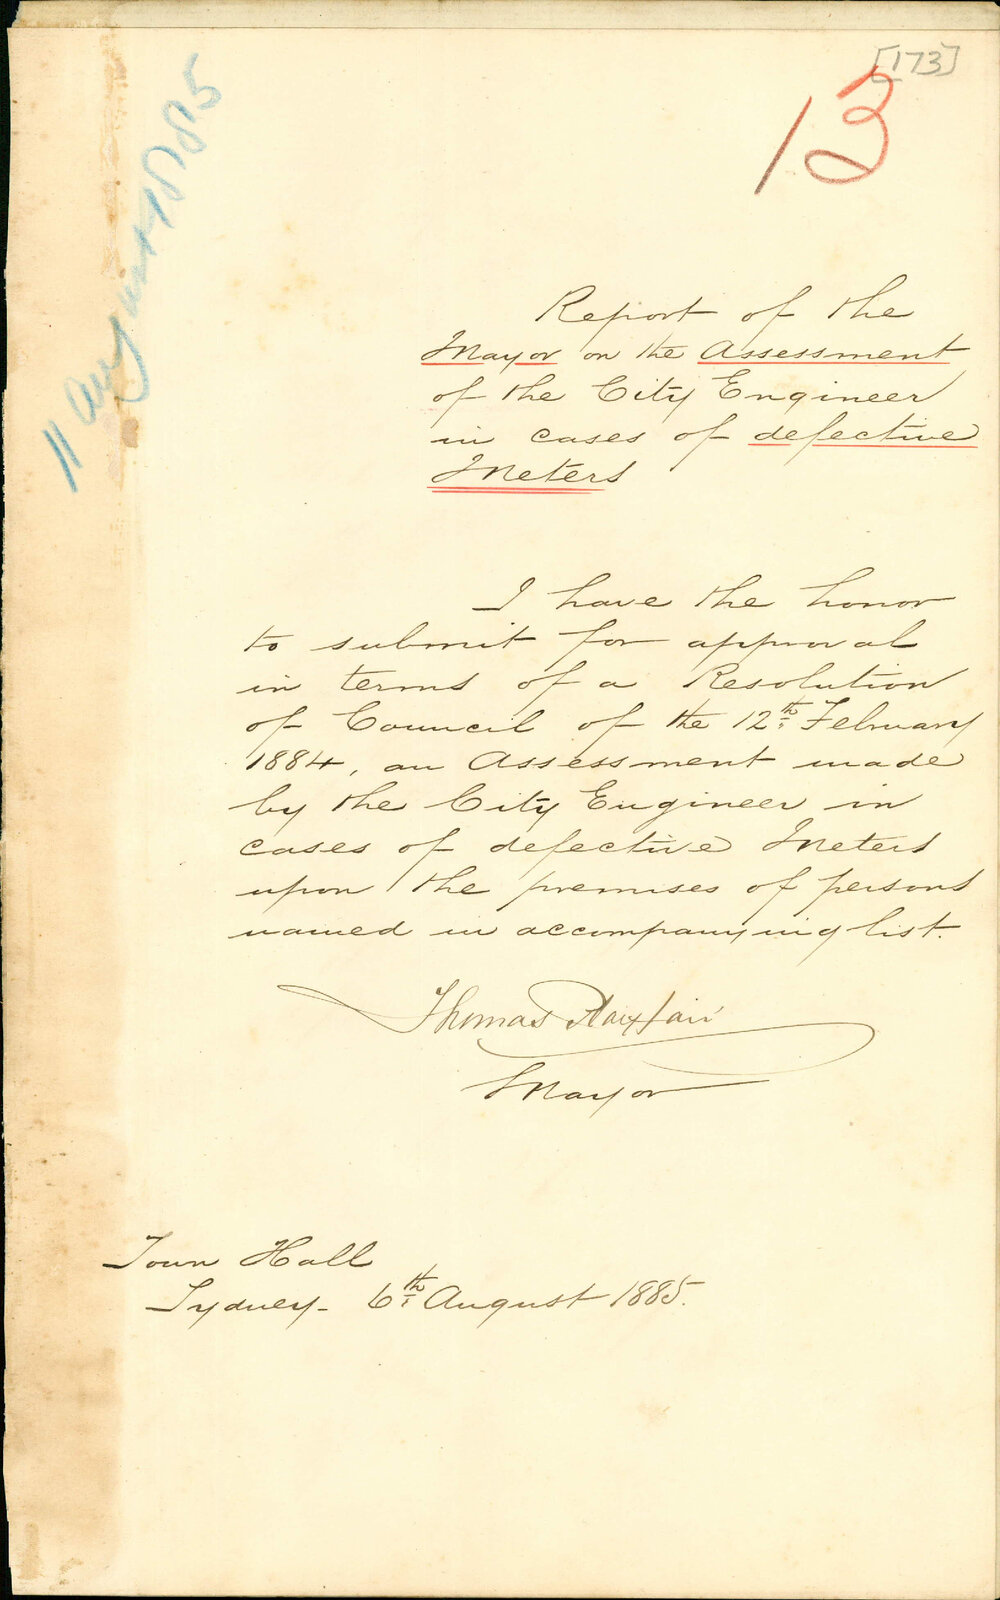 [173]
13
11 August 1885
Report of the
Mayor on the Assessment
of the City Engineer
in cases of defective
Meters
I have the honor
to submit for approval
in terms of a Resolution
of Council of the 12th February
1884, an Assessment made
by the City Engineer in
cases of defective Meters
upon the premises of persons
named in accompanying list.
Thomas Playfair
Mayor
Town Hall
Sydney - 6th August 1885.